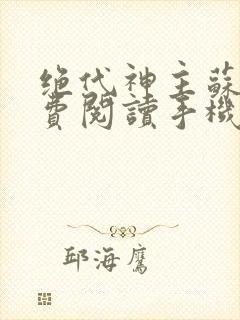 绝代神主蘇
費閱讀手機
邱海鷹